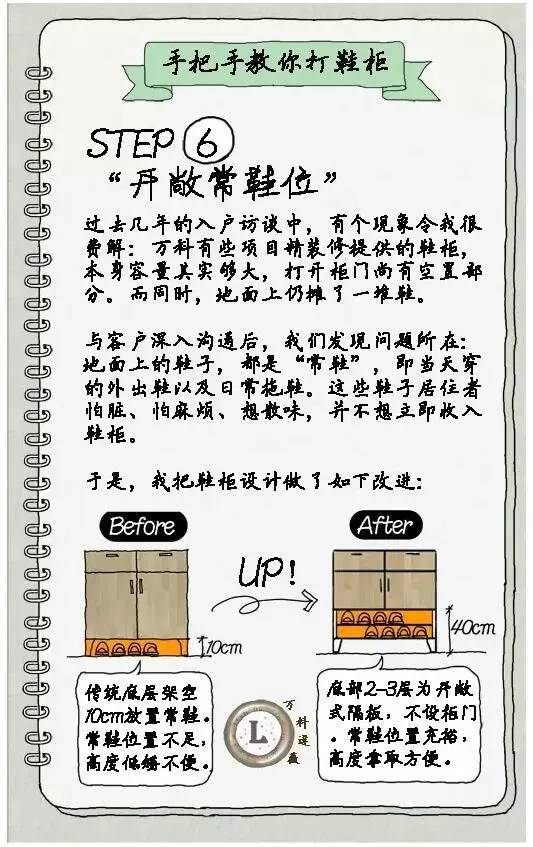 手把手教你打鞋柜
STEP 6
“开敞常鞋位”
过去几年的入户访谈中，有个现象令我很
费解：万科有些项目精装修提供的鞋柜，
本身容量其实够大，打开柜门尚有空置部
分。而同时，地面上仍摊了一堆鞋。
与客户深入沟通后，我们发现问题所在：
地面上的鞋子，都是“常鞋”，即当天穿
的外出鞋以及日常拖鞋。这些鞋子居住者
怕脏、怕麻烦、想散味，并不想立即收入
鞋柜。
于是，我把鞋柜设计做了如下改进：
Before
After
UP!
10cm
40cm
传统底层架空
10cm放置常鞋。
常鞋位置不足，
高度低矮不便。
底部2-3层为开敞
式隔板，不设柜门
。常鞋位置充裕，
高度拿取方便。
L
万科